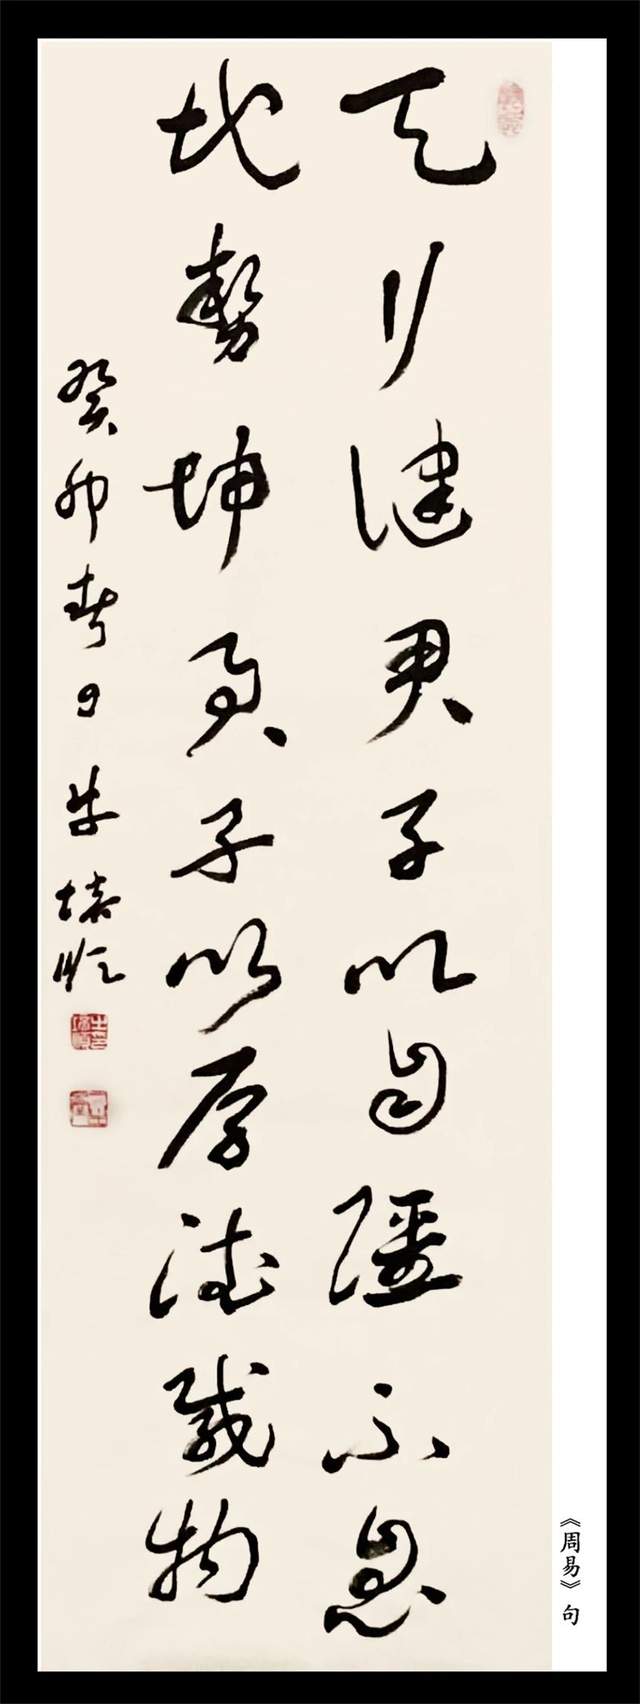 天行健君子以自彊不息
地勢坤君子以厚德載物
癸卯春日牛培順
《周易》句